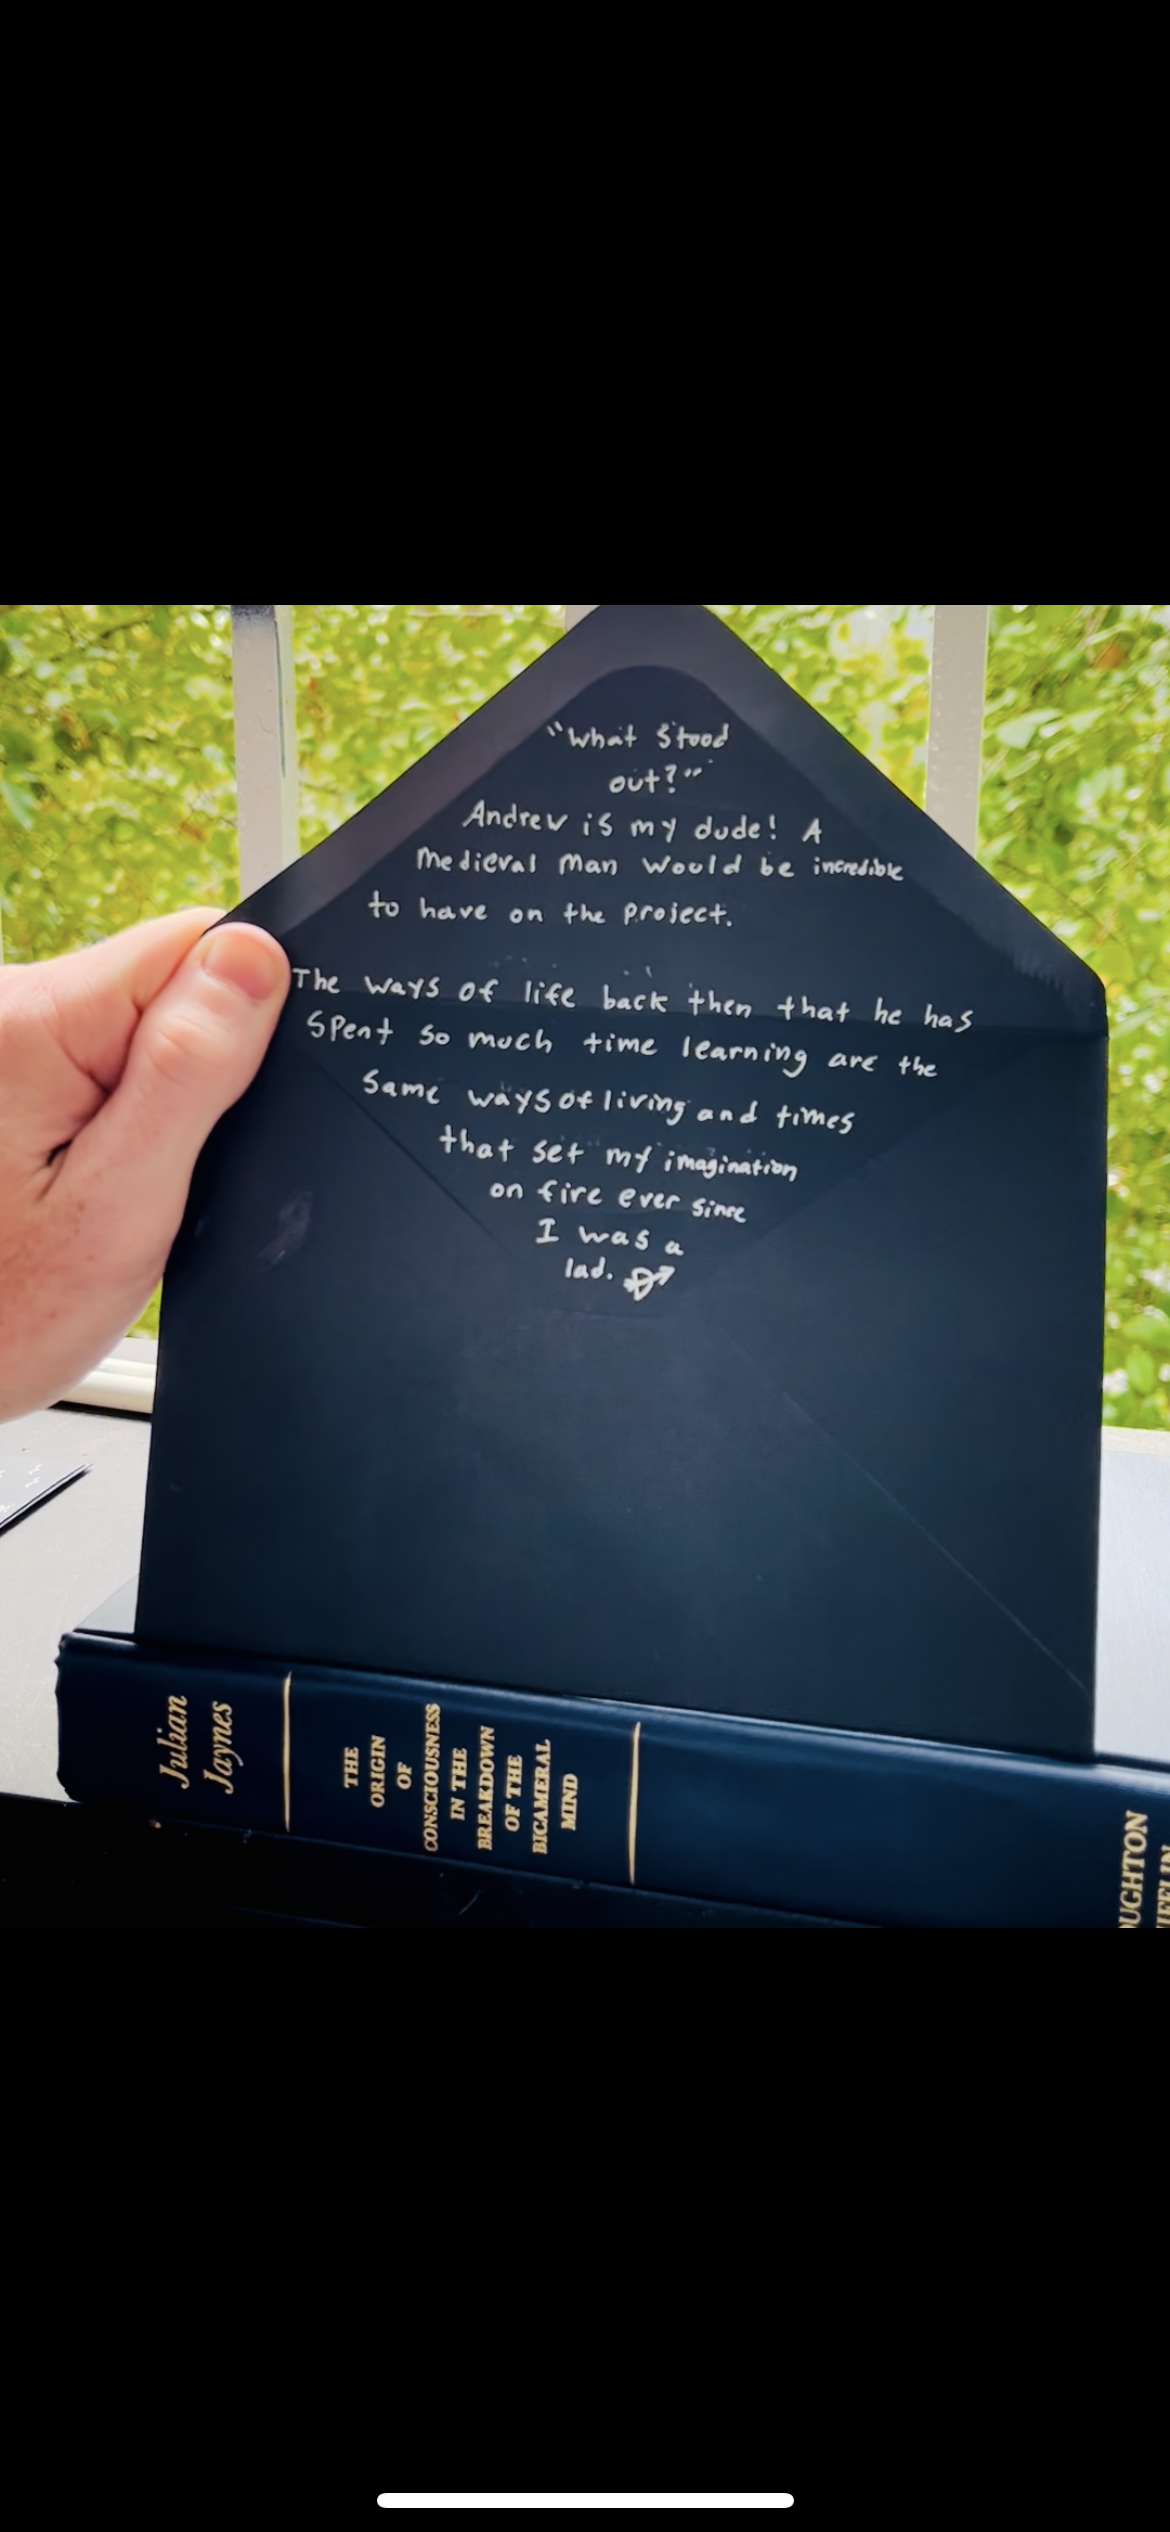 "What Stood
out?"
Andrew is my dude! A
Medieval Man would be incredible
to have on the project.
The ways of life back then that he has
spent so much time learning are the
same ways of living and times
that set my imagination
on fire ever since
I was a
lad.
Julian
Jaynes
THE
ORIGIN
OF
CONSCIOUSNESS
IN THE
BREAKDOWN
OF THE
BICAMERAL
MIND
OUGHTON